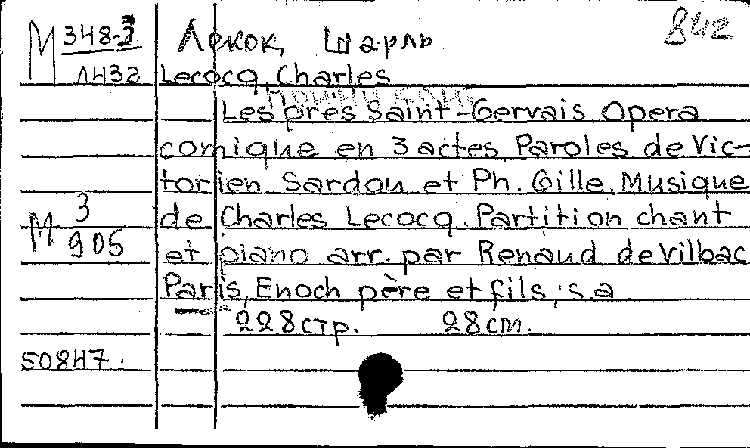 М 348-3 Лекок, Шарль 842
Л432 Lecocq, Charles
Les prés Saint-Gervais Opera
comique en 3 actes Paroles de Vic-
torien Sardou et Ph. Gille. Musique
М 3 de Charles Lecocq. Partition chant
905 et piano arr. par Renaud de Vilbac
Paris, Enoch père et fils, s.a
228 стр. 28 см.
50847.